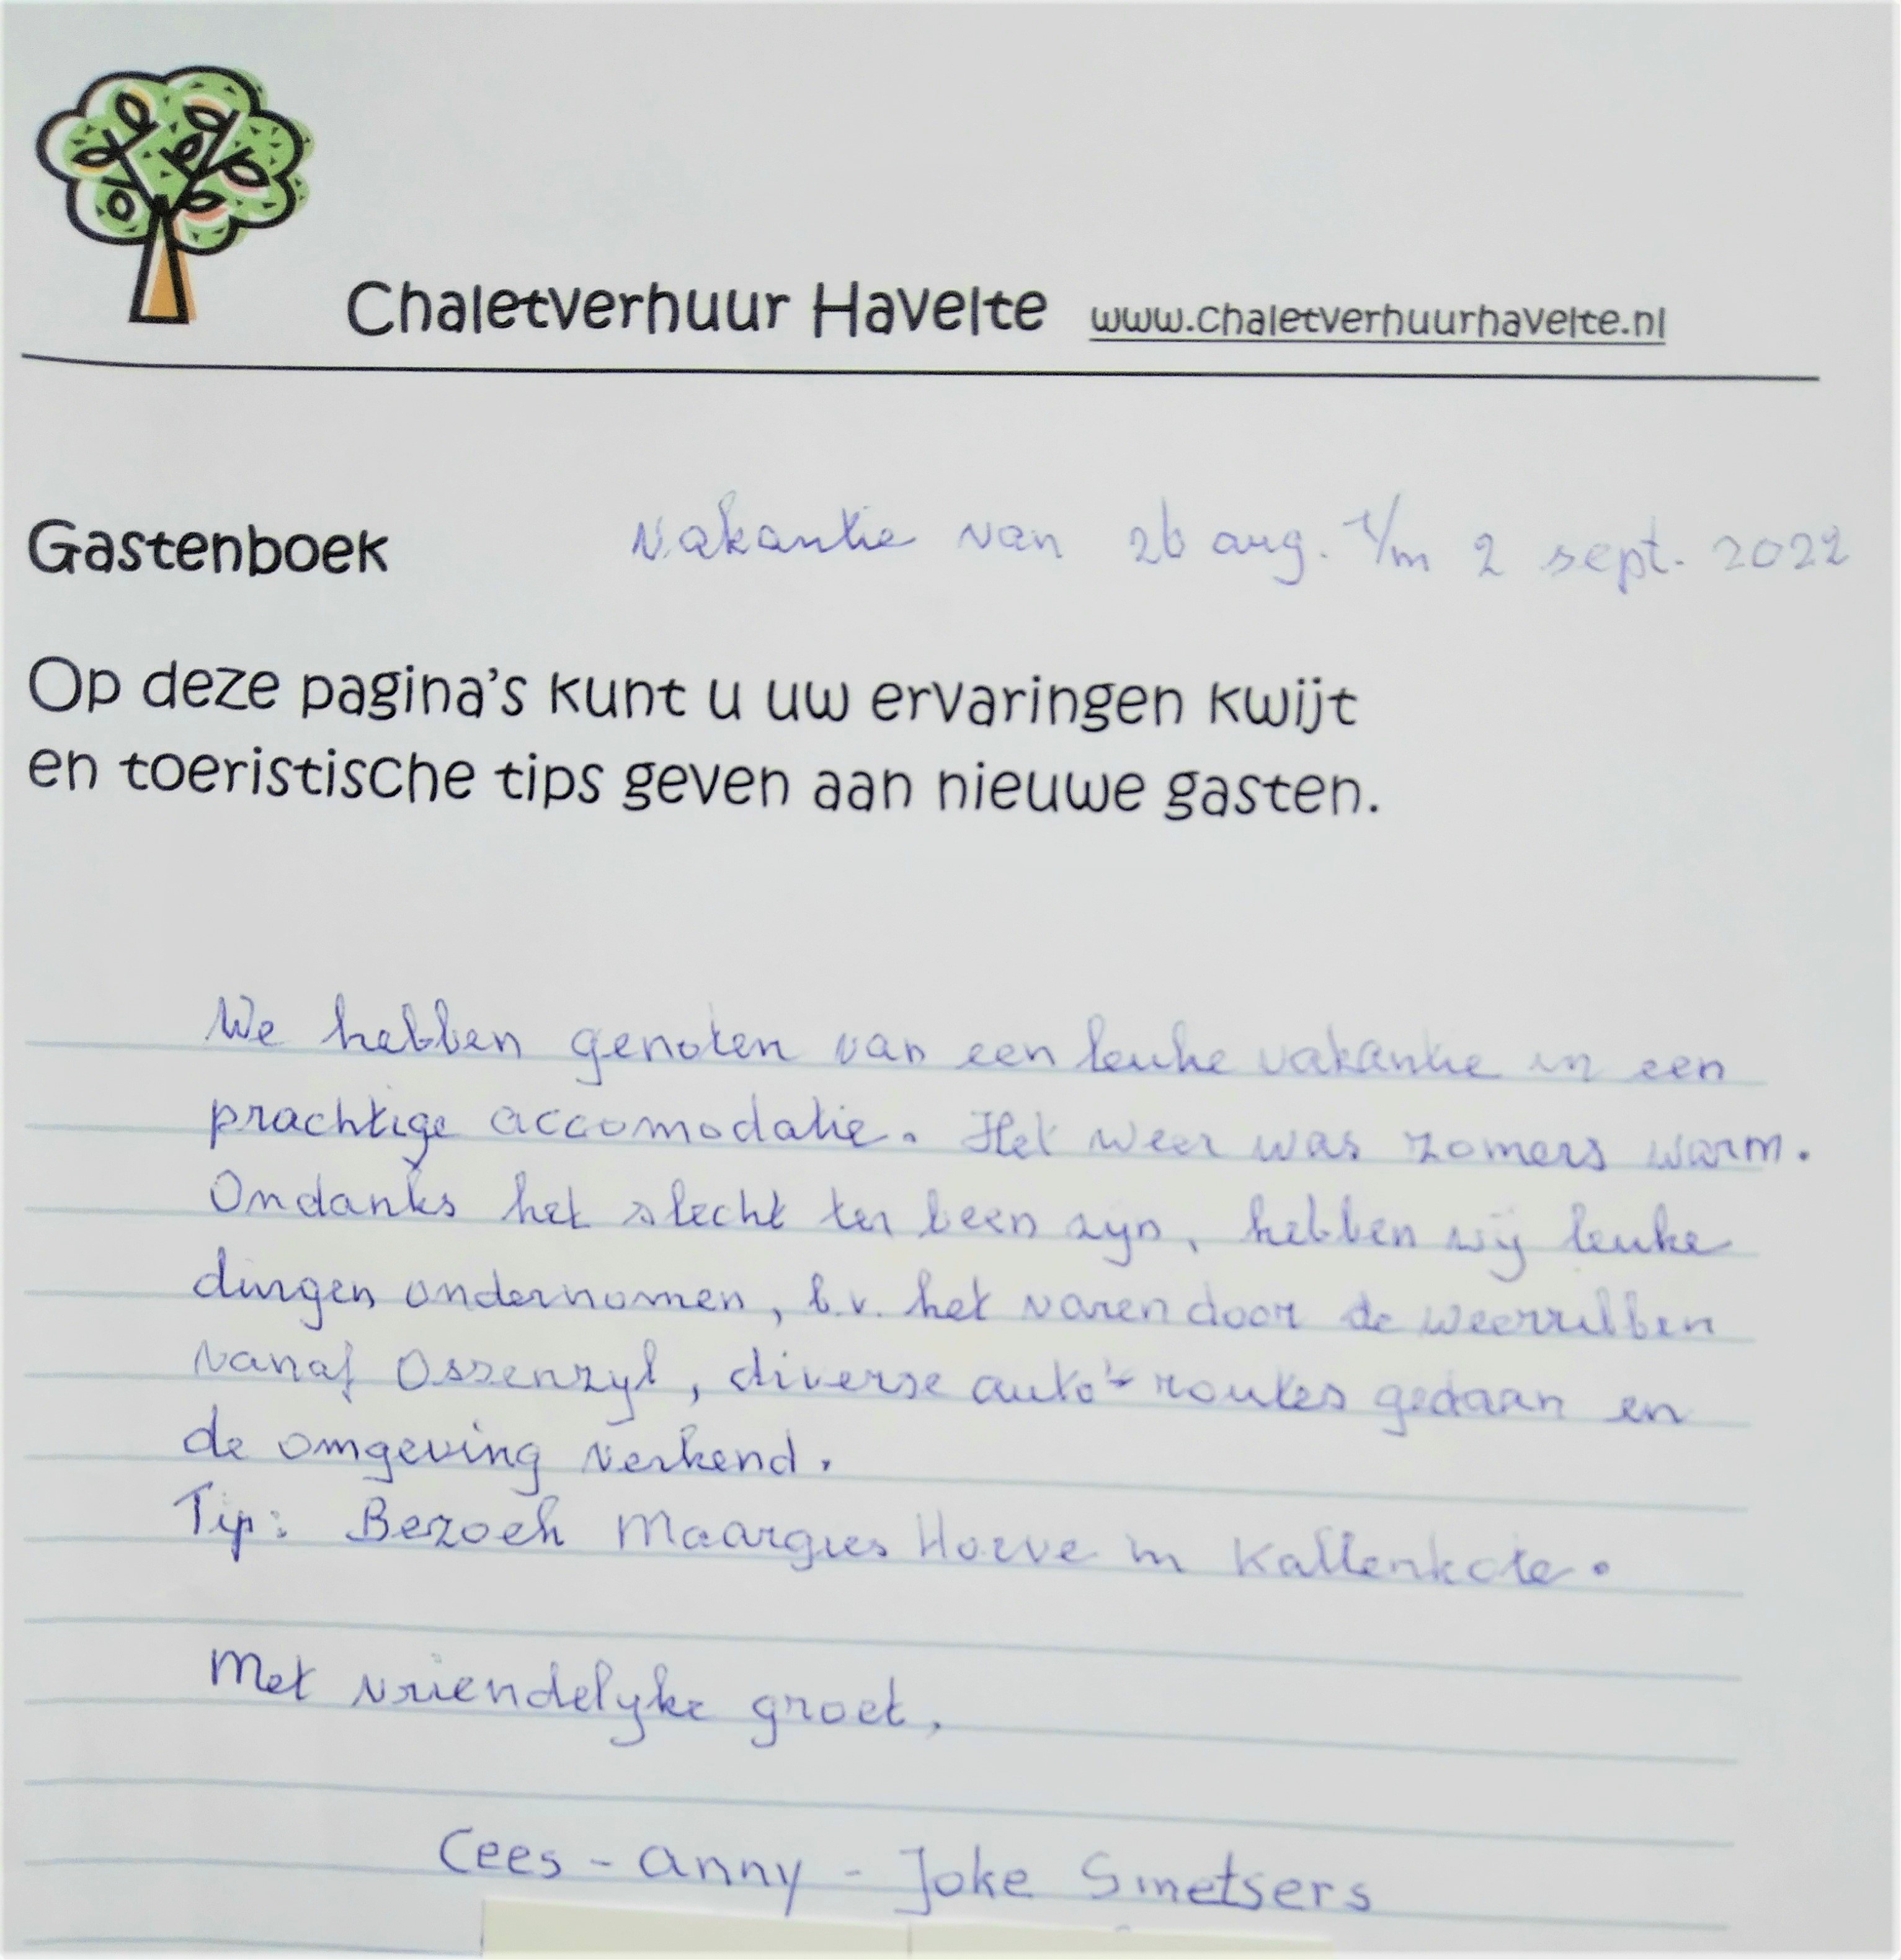 Chaletverhuur Havelte www.chaletverhuurhavelte.nl
Gastenboek Vakantie van 26 aug. t/m 2 sept. 2022
Op deze pagina's kunt u uw ervaringen kwijt
en toeristische tips geven aan nieuwe gasten.
We hebben genoten van een leuke vakantie in een
prachtige accomodatie. Het weer was zomers warm.
Ondanks het slecht ter been zyn, hebben wij leuke
dingen ondernomen, b.v. het varen door de weerribben
vanaf Ossenzyl, diverse auto's routes gedaan en
de omgeving verkend.
Tip: Bezoek Maargies Hoeve in Kallenkote.
Met vriendelyke groet,
Cees - Anny - Joke Smetsers